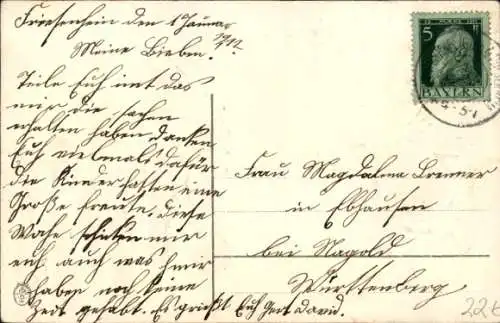 Friesenheim den 1 Januar
1912.
Meine Lieben.
Teile Euch mit das
wir die sachen
erhalten haben. Danken
Euch vielmals dafür
die Kinder hatten eine
Große freute. Diese
Woche schicken wir
euch auch was
haben noch keine
Zeit gehabt. Es grüßt Euch David.
5
BAYERN
Frau Magdalena Brenner
in Ebhausen
bei Nagold
Württenberg